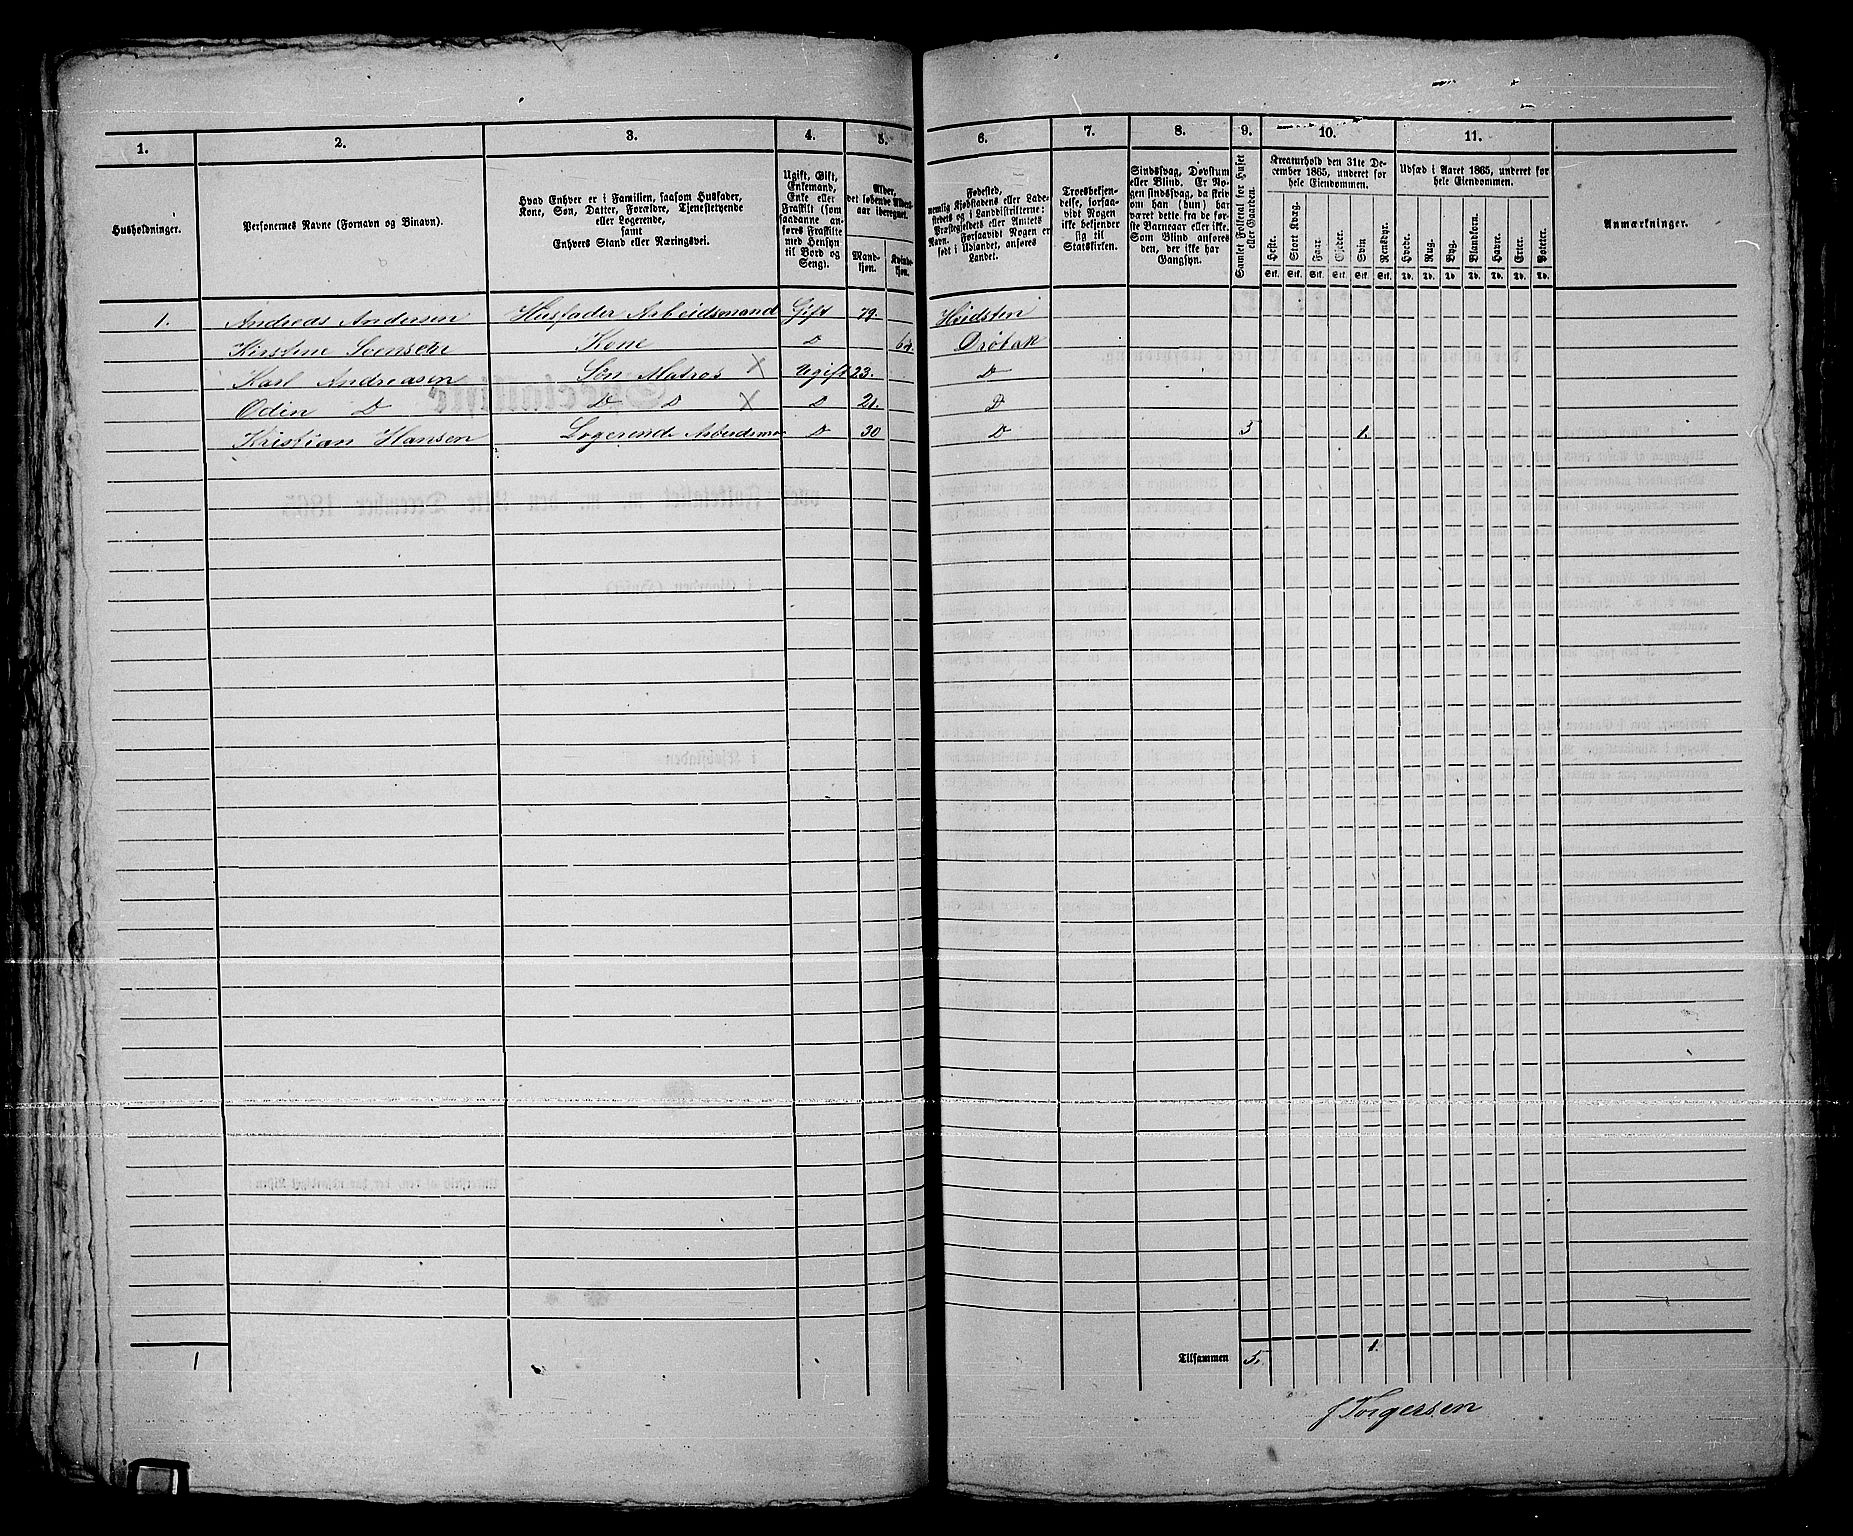 1. 2. 3. 4. 5. 6. 7. 8. 9. 10. 11.
Husholdninger.
Personernes Navne (Fornavn og Binavn).
Hvad Enhver er i Familien, saasom Husfader,
Kone, Søn, Datter, Forældre, Tjenestetyende
eller Logerende,
samt
Enhvers Stand eller Næringsvei.
Ugift, Gift,
Enkemand,
Enke eller
Fraskilt (som
saadanne an-
føres Fraskilte
med Hensyn
til Bord og
Seng).
Alder,
det løbende Alders-
aar iberegnet.
Mand-
kjøn.
Kvinde-
kjøn.
Fødested,
nemlig Kjøbstadens eller Lade-
stedets og i Landdistrikterne:
Præstegjeldets eller Amtets
Navn. Forsaavidt Nogen er
født i Udlandet, anføres
Landet.
Troesbekjen-
delse, forsaa-
vidt Nogen
ikke bekjender
sig til
Statskirken.
Sindssvag, Døvstum
eller Blind. Er No-
gen sindssvag, da skriv
om han (hun) har
været dette fra de før-
ste Barneaar eller ikke.
Som Blind anføres
den, der ikke har
Gangsyn.
Samlet Folketal for Huset
eller Gaarden.
Kreaturhold den 31te De-
cember 1865, underet for
hele Eiendommen.
Heste. Stort Kvæg. Faar. Gjeder. Svin Rensdyr.
Stk. Stk. Stk. Stk. Stk. Stk.
Udsæd i Aaret 1865, underet for
hele Eiendommen.
Hvede. Rug. Byg. Blandkorn. Havre. Erter. Poteter.
Td. Td. Td. Td. Td. Td. Td.
Anmærkninger.
1. Andreas Andersen Husfader Arbeidsmand Gift 79. Hvidsten
Kirstine Svensen Kone D Drøbak
Karl Andreasen Søn Matros X Ugift 23. D
Odin D D D X D 21. D
Kristian Hansen Logerende Arbeidsma D 30 D 5 1.
1 Tilsammen 5. 1.
J Torgersen